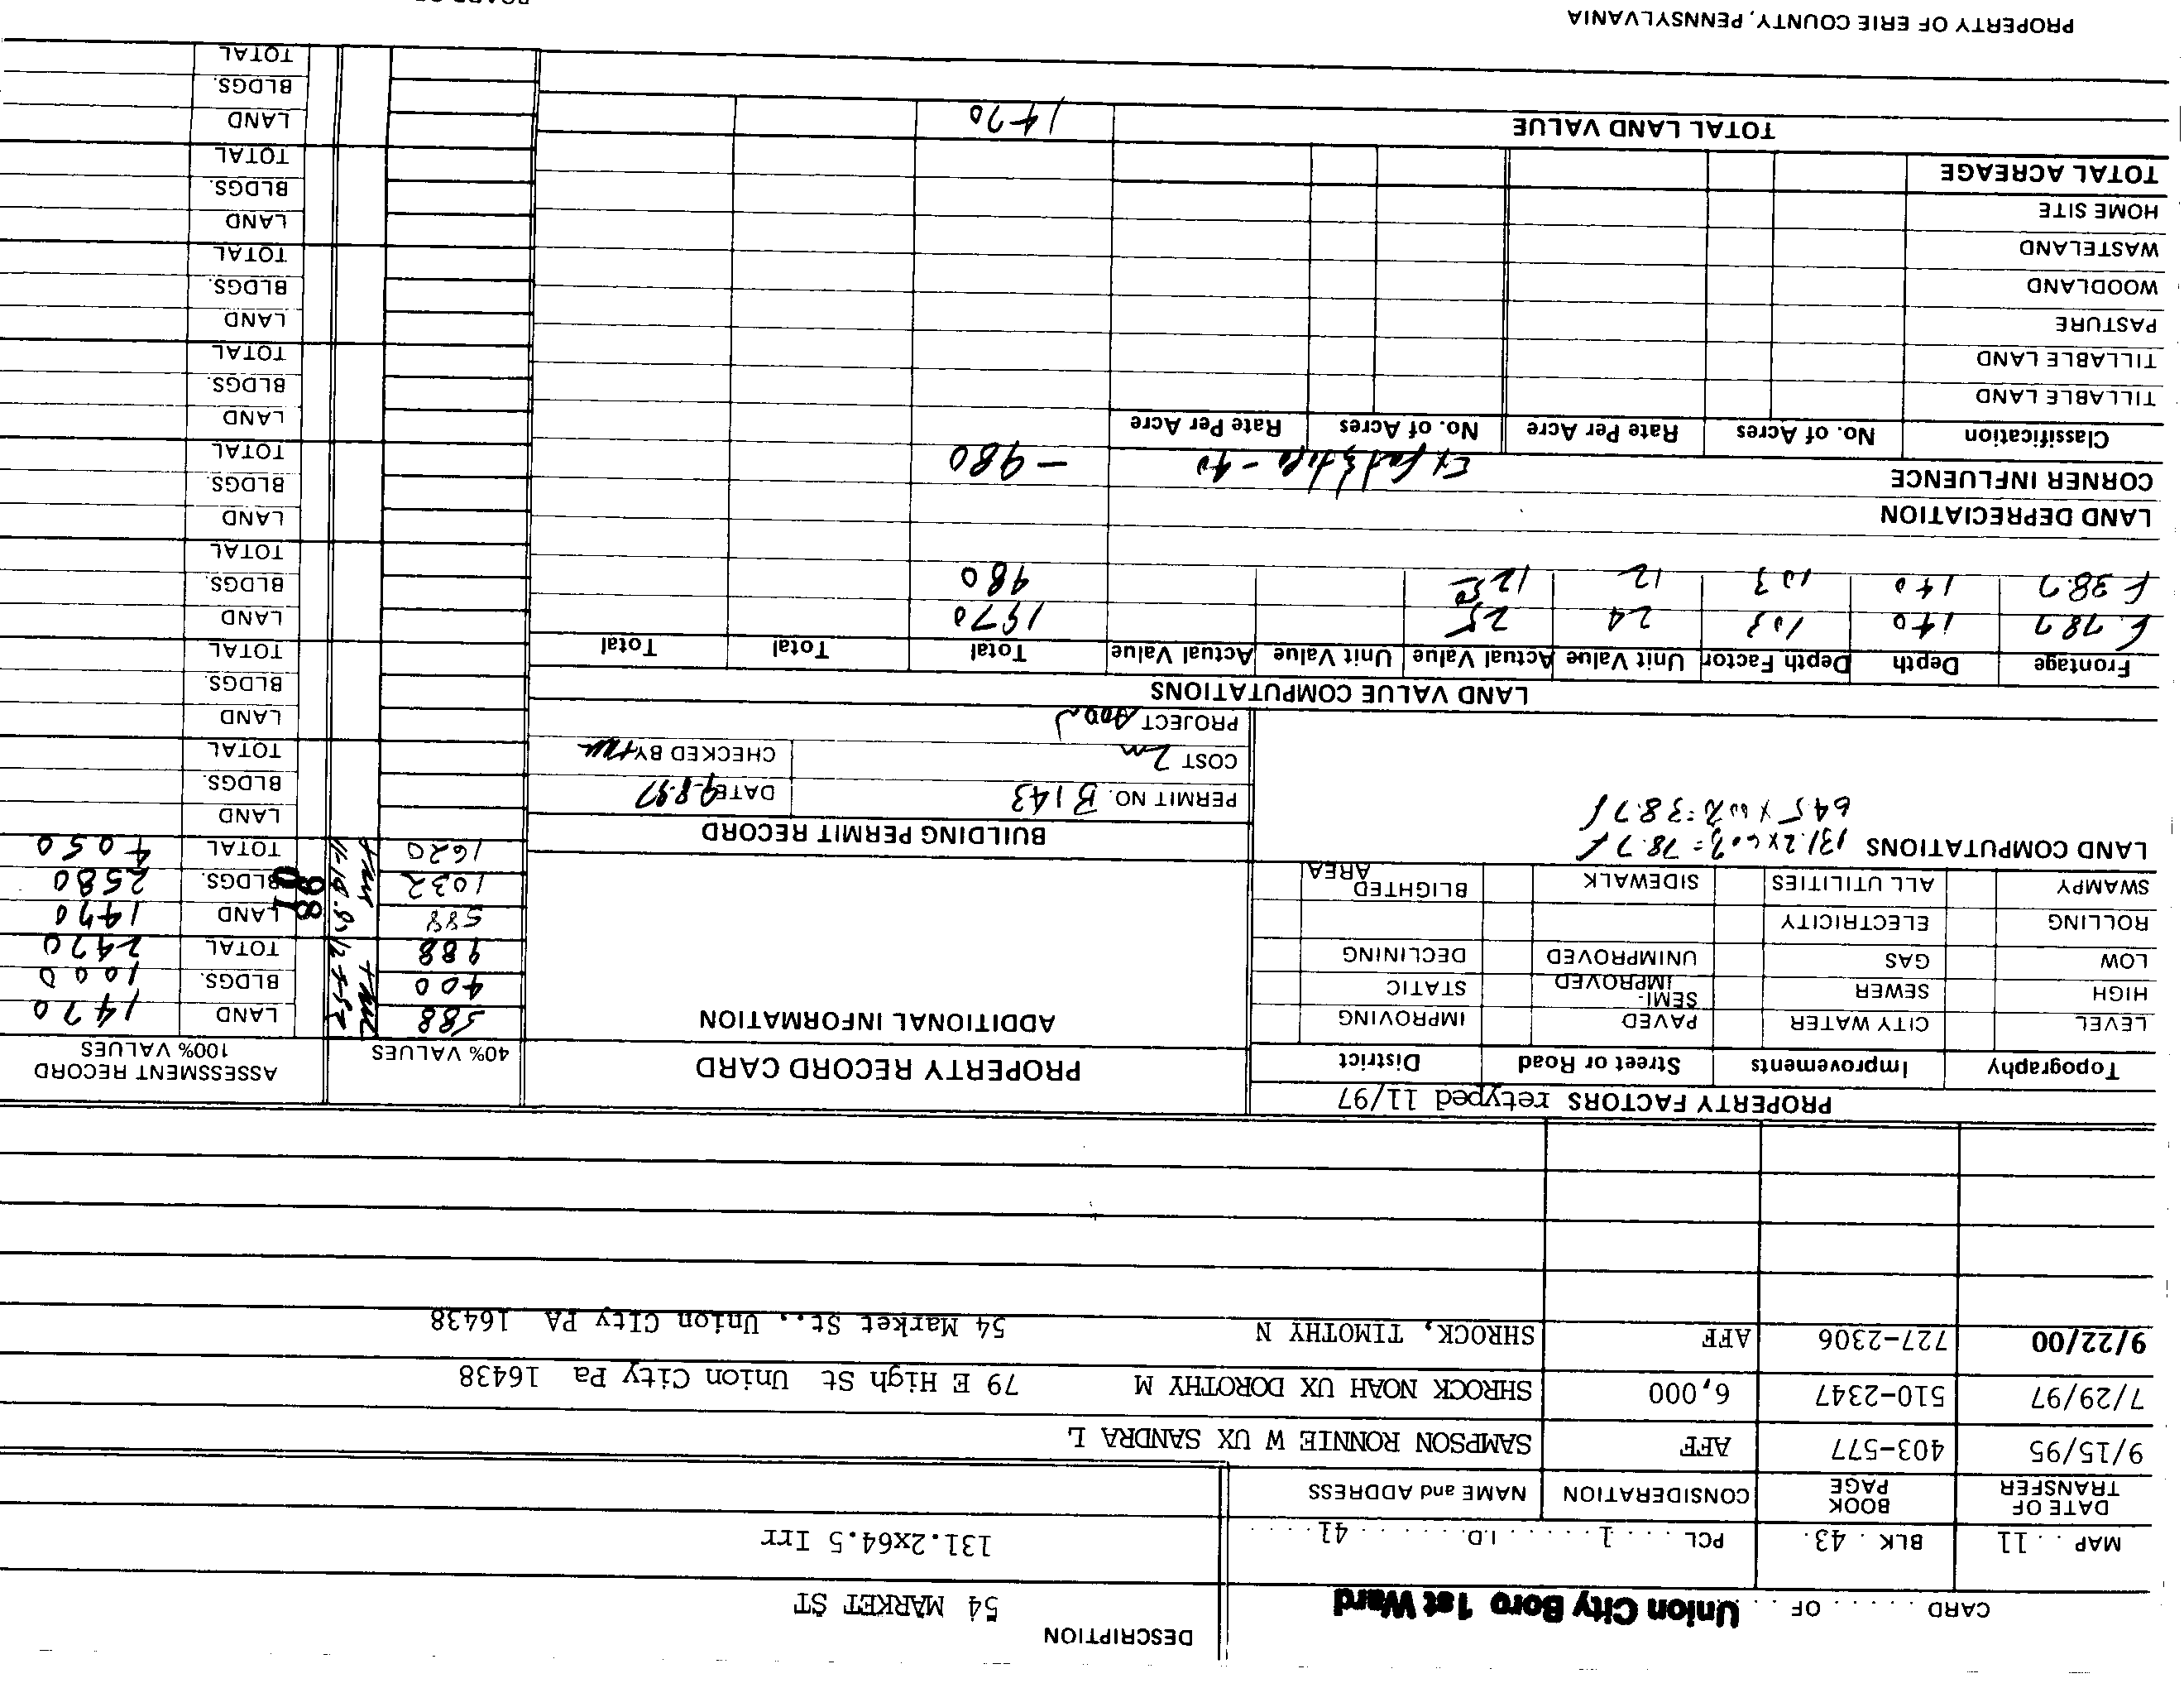 DESCRIPTION
CARD . . . . . . OF . . . Union City Boro 1st Ward
54 MARKET ST
MAP . . 11 BLK . 43. PCL . . . . 1 . . . . . . I.D. . . . . . . 41 . . . . .
131.2x64.5 Irr
DATE OF TRANSFER BOOK PAGE CONSIDERATION NAME and ADDRESS
9/15/95 403-577 AFF SAMPSON RONNIE W UX SANDRA L
7/29/97 510-2347 6,000 SHROCK NOAH UX DOROTHY M 79 E High St Union City Pa 16438
9/22/00 727-2306 AFF SHROCK, TIMOTHY N 54 Market St., Union CIty PA 16438
PROPERTY FACTORS retyped 11/97
Topography Improvements Street or Road District
LEVEL CITY WATER PAVED IMPROVING
HIGH SEWER SEMI-IMPROVED STATIC
LOW GAS UNIMPROVED DECLINING
ROLLING ELECTRICITY
SWAMPY ALL UTILITIES SIDEWALK BLIGHTED AREA
LAND COMPUTATIONS 131.2 x 60% = 78.7 f
64.5 x 60% = 38.7 f
PROPERTY RECORD CARD
ADDITIONAL INFORMATION
BUILDING PERMIT RECORD
PERMIT NO. B143 DATE 9-8-97
COST 2m CHECKED BY
PROJECT
40% VALUES ASSESSMENT RECORD 100% VALUES
588 LAND 1470
400 BLDGS. 1000
988 TOTAL 2470
588 LAND 1470
1032 BLDGS. 2580
1620 TOTAL 4050
1998
LAND
BLDGS.
TOTAL
LAND
BLDGS.
TOTAL
LAND
BLDGS.
TOTAL
LAND
BLDGS.
TOTAL
LAND
BLDGS.
TOTAL
LAND
BLDGS.
TOTAL
LAND
BLDGS.
TOTAL
LAND
BLDGS.
TOTAL
LAND VALUE COMPUTATIONS
Frontage Depth Depth Factor Unit Value Actual Value Unit Value Actual Value Total Total Total
f. 78.7 140 103 24 25 1970
f 38.7 140 103 12 12 50 480
LAND DEPRECIATION
CORNER INFLUENCE - 40 - 980
Classification No. of Acres Rate Per Acre No. of Acres Rate Per Acre
TILLABLE LAND
TILLABLE LAND
PASTURE
WOODLAND
WASTELAND
HOME SITE
TOTAL ACREAGE
TOTAL LAND VALUE 1470
PROPERTY OF ERIE COUNTY, PENNSYLVANIA